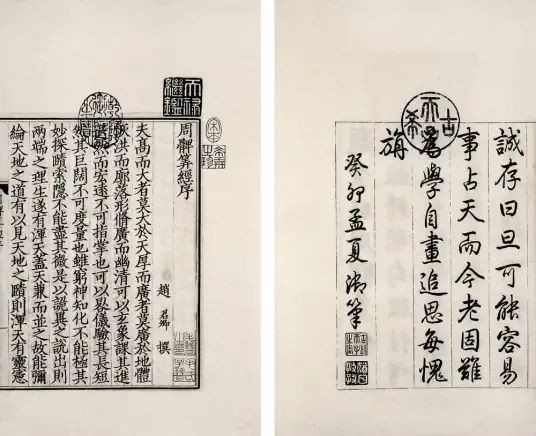 古希天子
誠存曰旦可能容易
事占天而今老固難
爲學自畫追思每愧
旃
癸卯孟夏御筆
天祿繼鑑
周髀筭經序
趙君卿撰
夫髙而大者莫大於天厚而廣者莫廣於地體
恢洪而廓落形脩廣而幽清可以玄象課其進
退然而宏遠不可指掌也可以晷儀驗其長短
然其巨闊不可度量也雖窮神知化不能極其
妙探賾索隱不能盡其微是以詭異之說出則
兩端之理生遂有渾天蓋天兼而並之故能彌
綸天地之道有以見天地之賾則渾天有靈憲